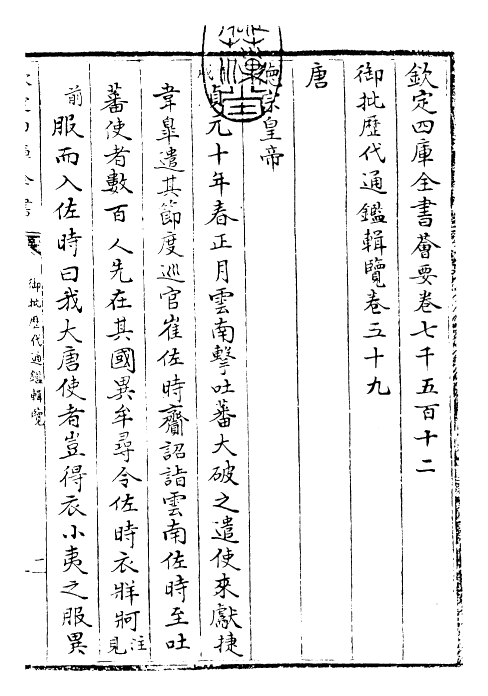 欽定四庫全書薈要卷七千五百十二
御批歷代通鑑輯覽卷五十九
唐
德宗皇帝
貞元十年春正月雲南擊吐蕃大破之遣使來獻捷
韋皋遣其節度巡官崔佐時齎詔詣雲南佐時至吐
蕃使者數百人先在其國異牟尋令佐時衣牂牁注見
前服而入佐時曰我大唐使者豈得衣小夷之服異
御批歷代通鑑輯覽
一